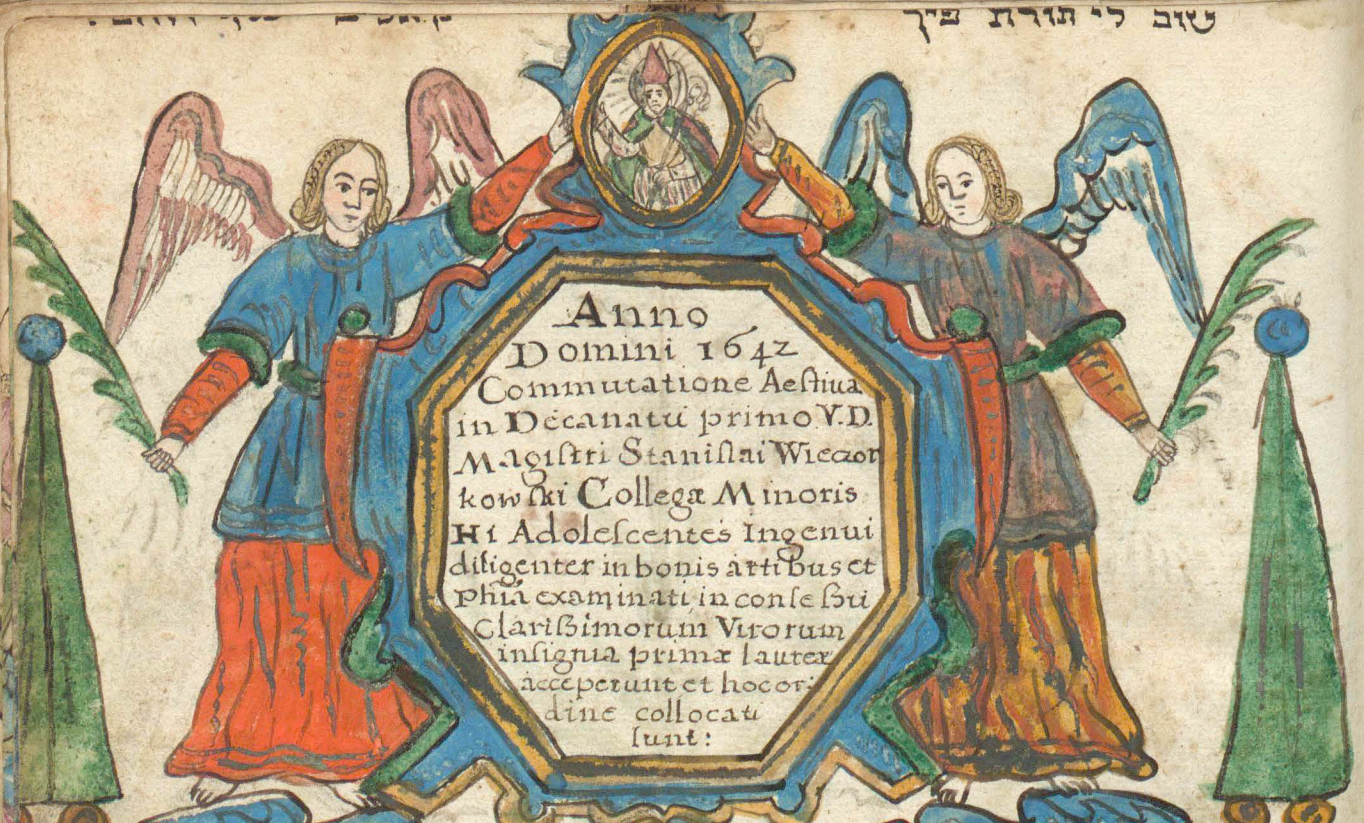 שוב לי תורת פיך
Anno
Domini 1642
Commutatione Aeſtiva
in Decanatu primo V.D.
Magiſtri Staniſlai Wieczor
kowſki Collegæ Minoris
Hi Adoleſcentes Ingenui
diligenter in bonis artibus et
Phiã examinati, in conſeſsu
Clariſsimorum Virorum
inſignia primæ laureæ
acceperunt et hoc or:
dine collocati
ſunt: